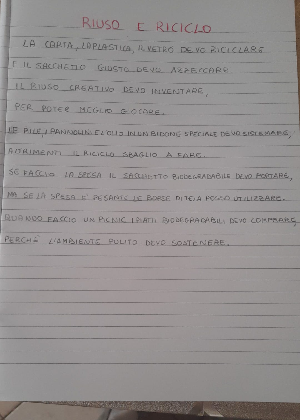 RIUSO E RICICLO
LA CARTA, LA PLASTICA, IL VETRO DEVO RICICLARE
E IL SACCHETTO GIUSTO DEVO AZZECCARE.
IL RIUSO CREATIVO DEVO INVENTARE,
PER POTER MEGLIO GIOCARE.
LE PILE, I PANNOLINI E L'OLIO IN UN BIDONE SPECIALE DEVO SISTEMARE,
ALTRIMENTI IL RICICLO SBAGLIO A FARE.
SE FACCIO LA SPESA IL SACCHETTO BIODEGRADABILE DEVO PORTARE,
MA SE LA SPESA E' PESANTE LE BORSE DI TELA POSSO UTILIZZARE.
QUANDO FACCIO UN PICNIC I PIATTI BIODEGRADABILI DEVO COMPRARE,
PERCHÉ L'AMBIENTE PULITO DEVO SOSTENERE.